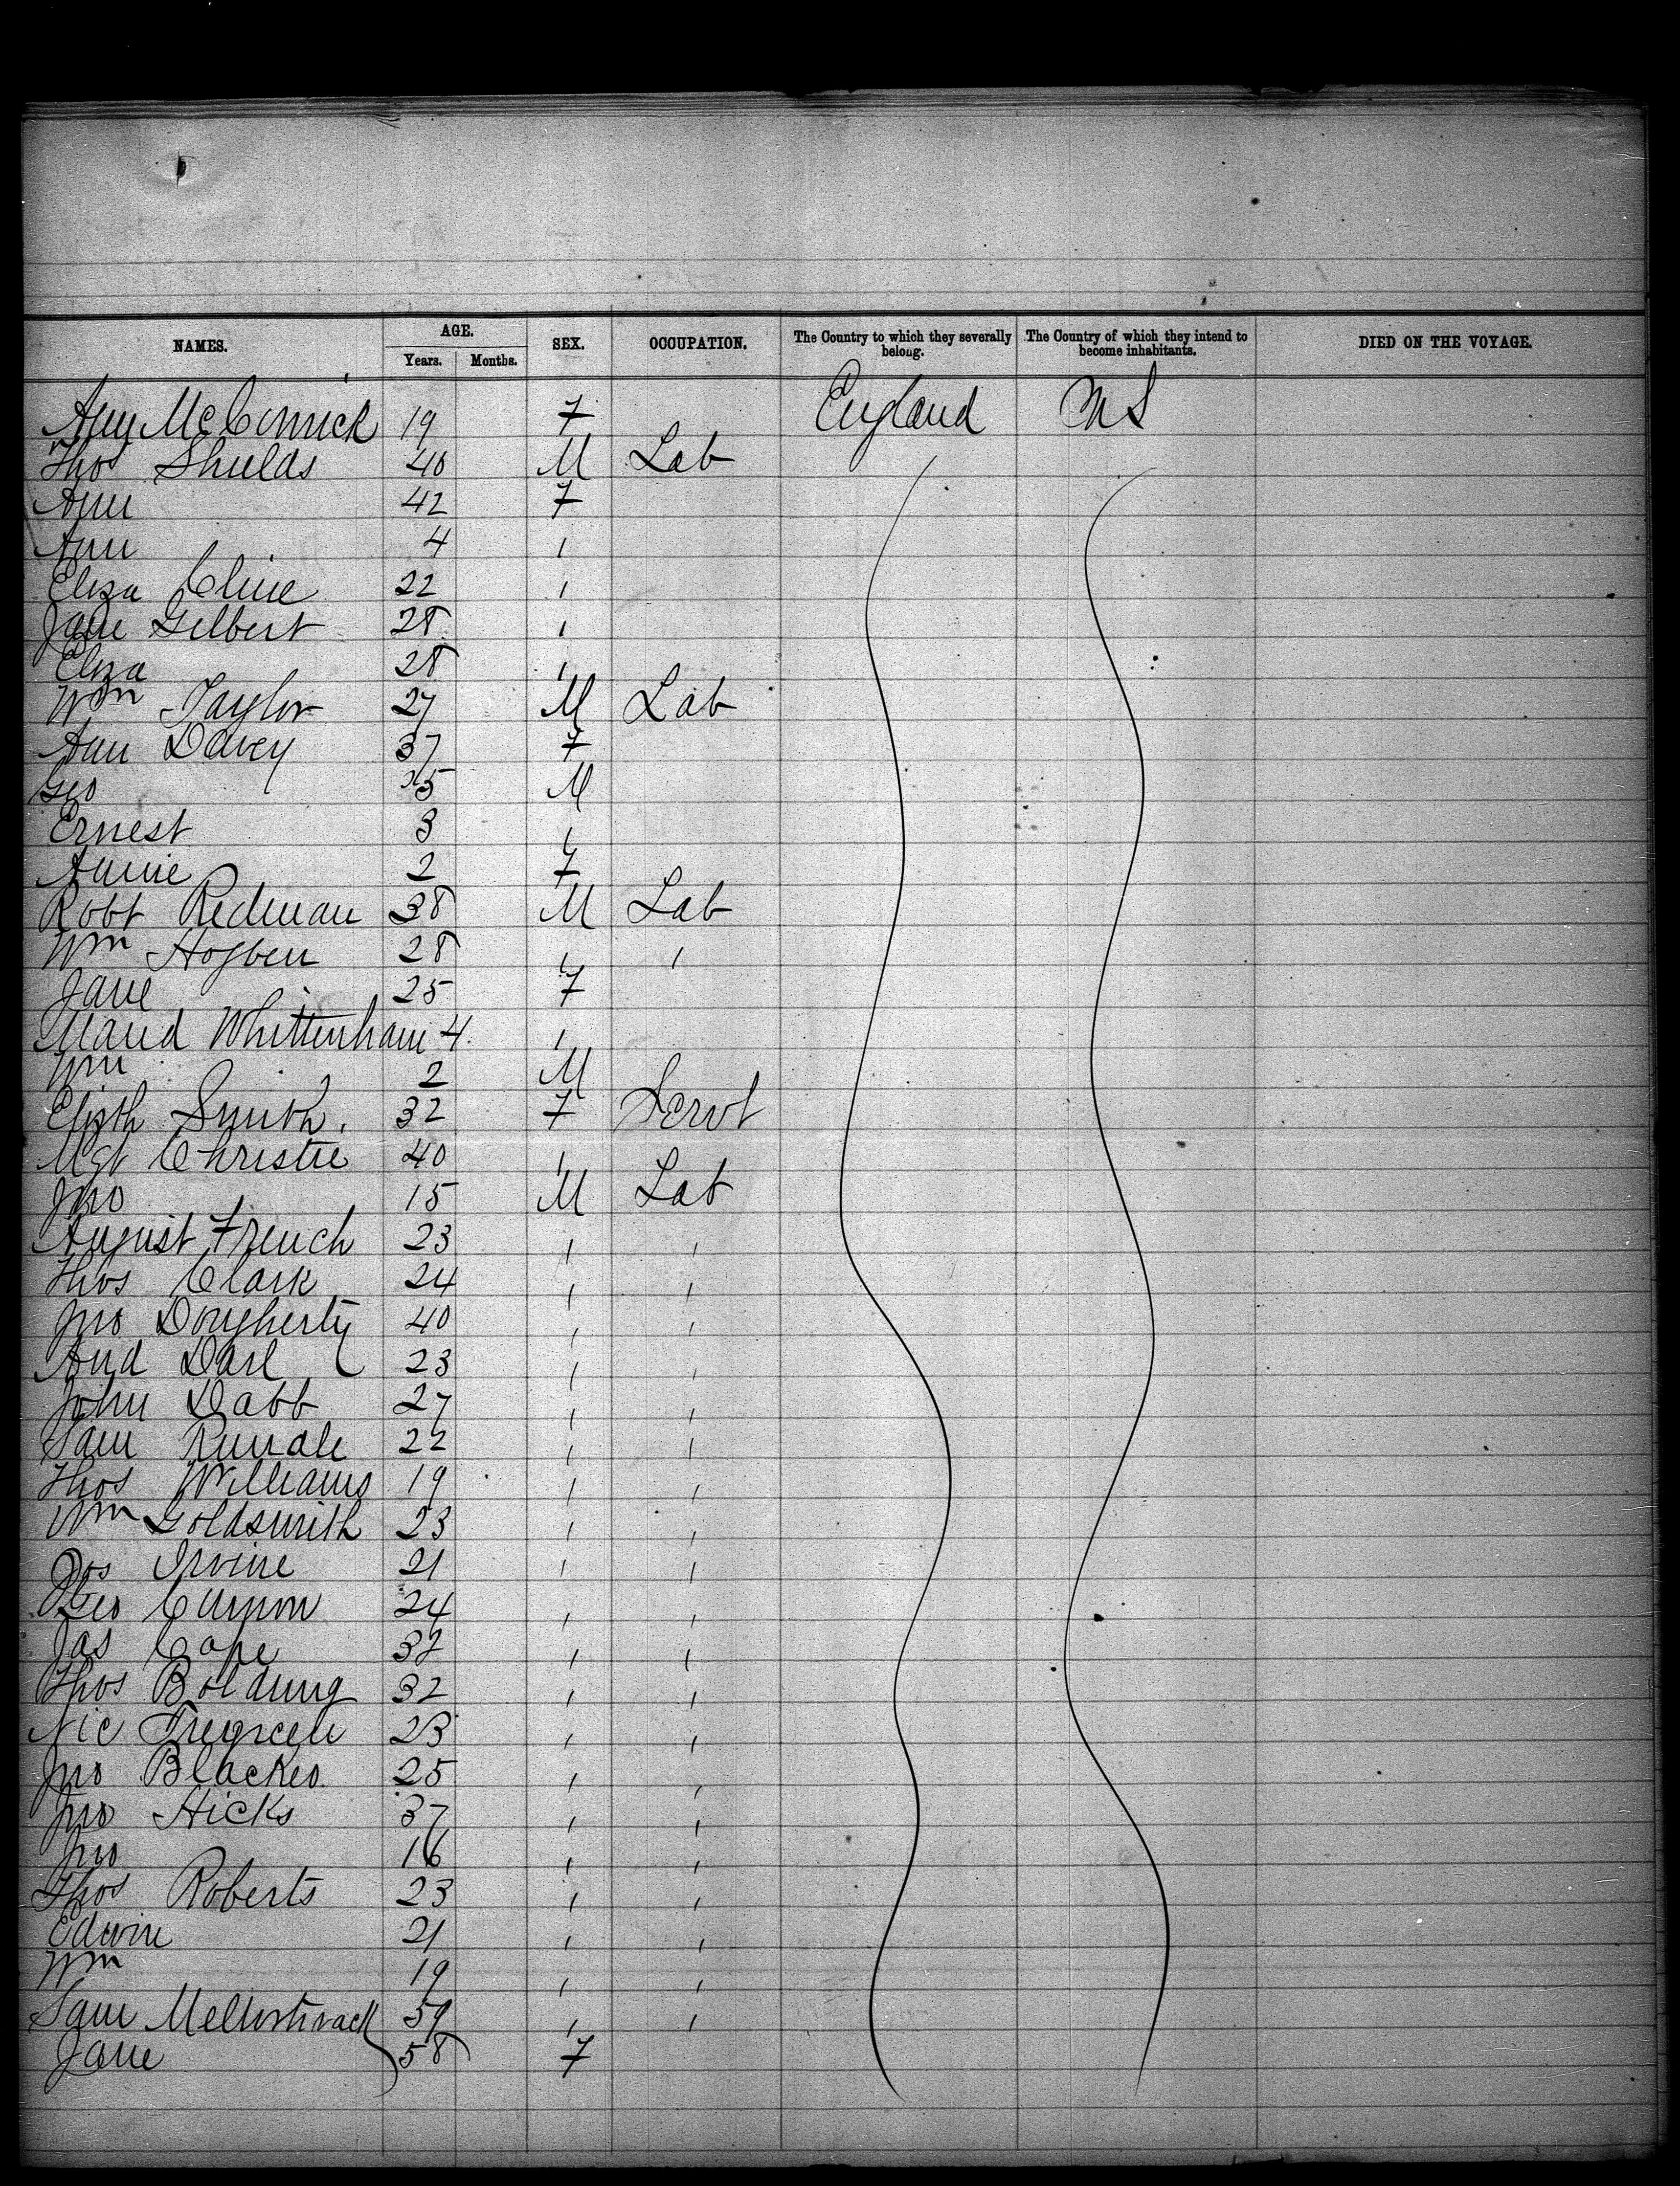 NAMES. AGE. Years. Months. SEX. OCCUPATION. The Country to which they severally belong. The Country of which they intend to become inhabitants. DIED ON THE VOYAGE.
McCormick 19 F England US
Thos Shields 40 M Lab
Ann 42 F
Ann 4 "
Eliza Cline 22 "
Jane Gilbert 28 "
Eliza 28 "
Wm Taylor 27 M Lab
Ann Davey 37 F
Geo M
Ernest 3 "
Annie 2 F
Robt Redman 38 M Lab
Wm Hogben 28 " "
Jane 25 F
Maud Whittenham 4 "
Wm 2 M
Elizth Smith. 32 F Servt
Mgt Christie 40 "
Jno 15 M Lab
August French 23 " "
Thos Clark 24 " "
Jno Dougherty 40 " "
And Darl 23 " "
John Dabb 27 " "
Sam Rundle 22 " "
Thos Williams 19 " "
Wm Goldsmith 23 " "
Jos Irvine 21 " "
Geo 24 " "
Jas Cope 32 " "
Thos Bolding 32 " "
Nic 23 " "
Jno 25 " "
Jno Hicks 37 " "
Jno 16 " "
Thos Roberts 23 " "
Edwin 21 " "
Wm 19 " "
Sam 59 " "
Jane 58 F